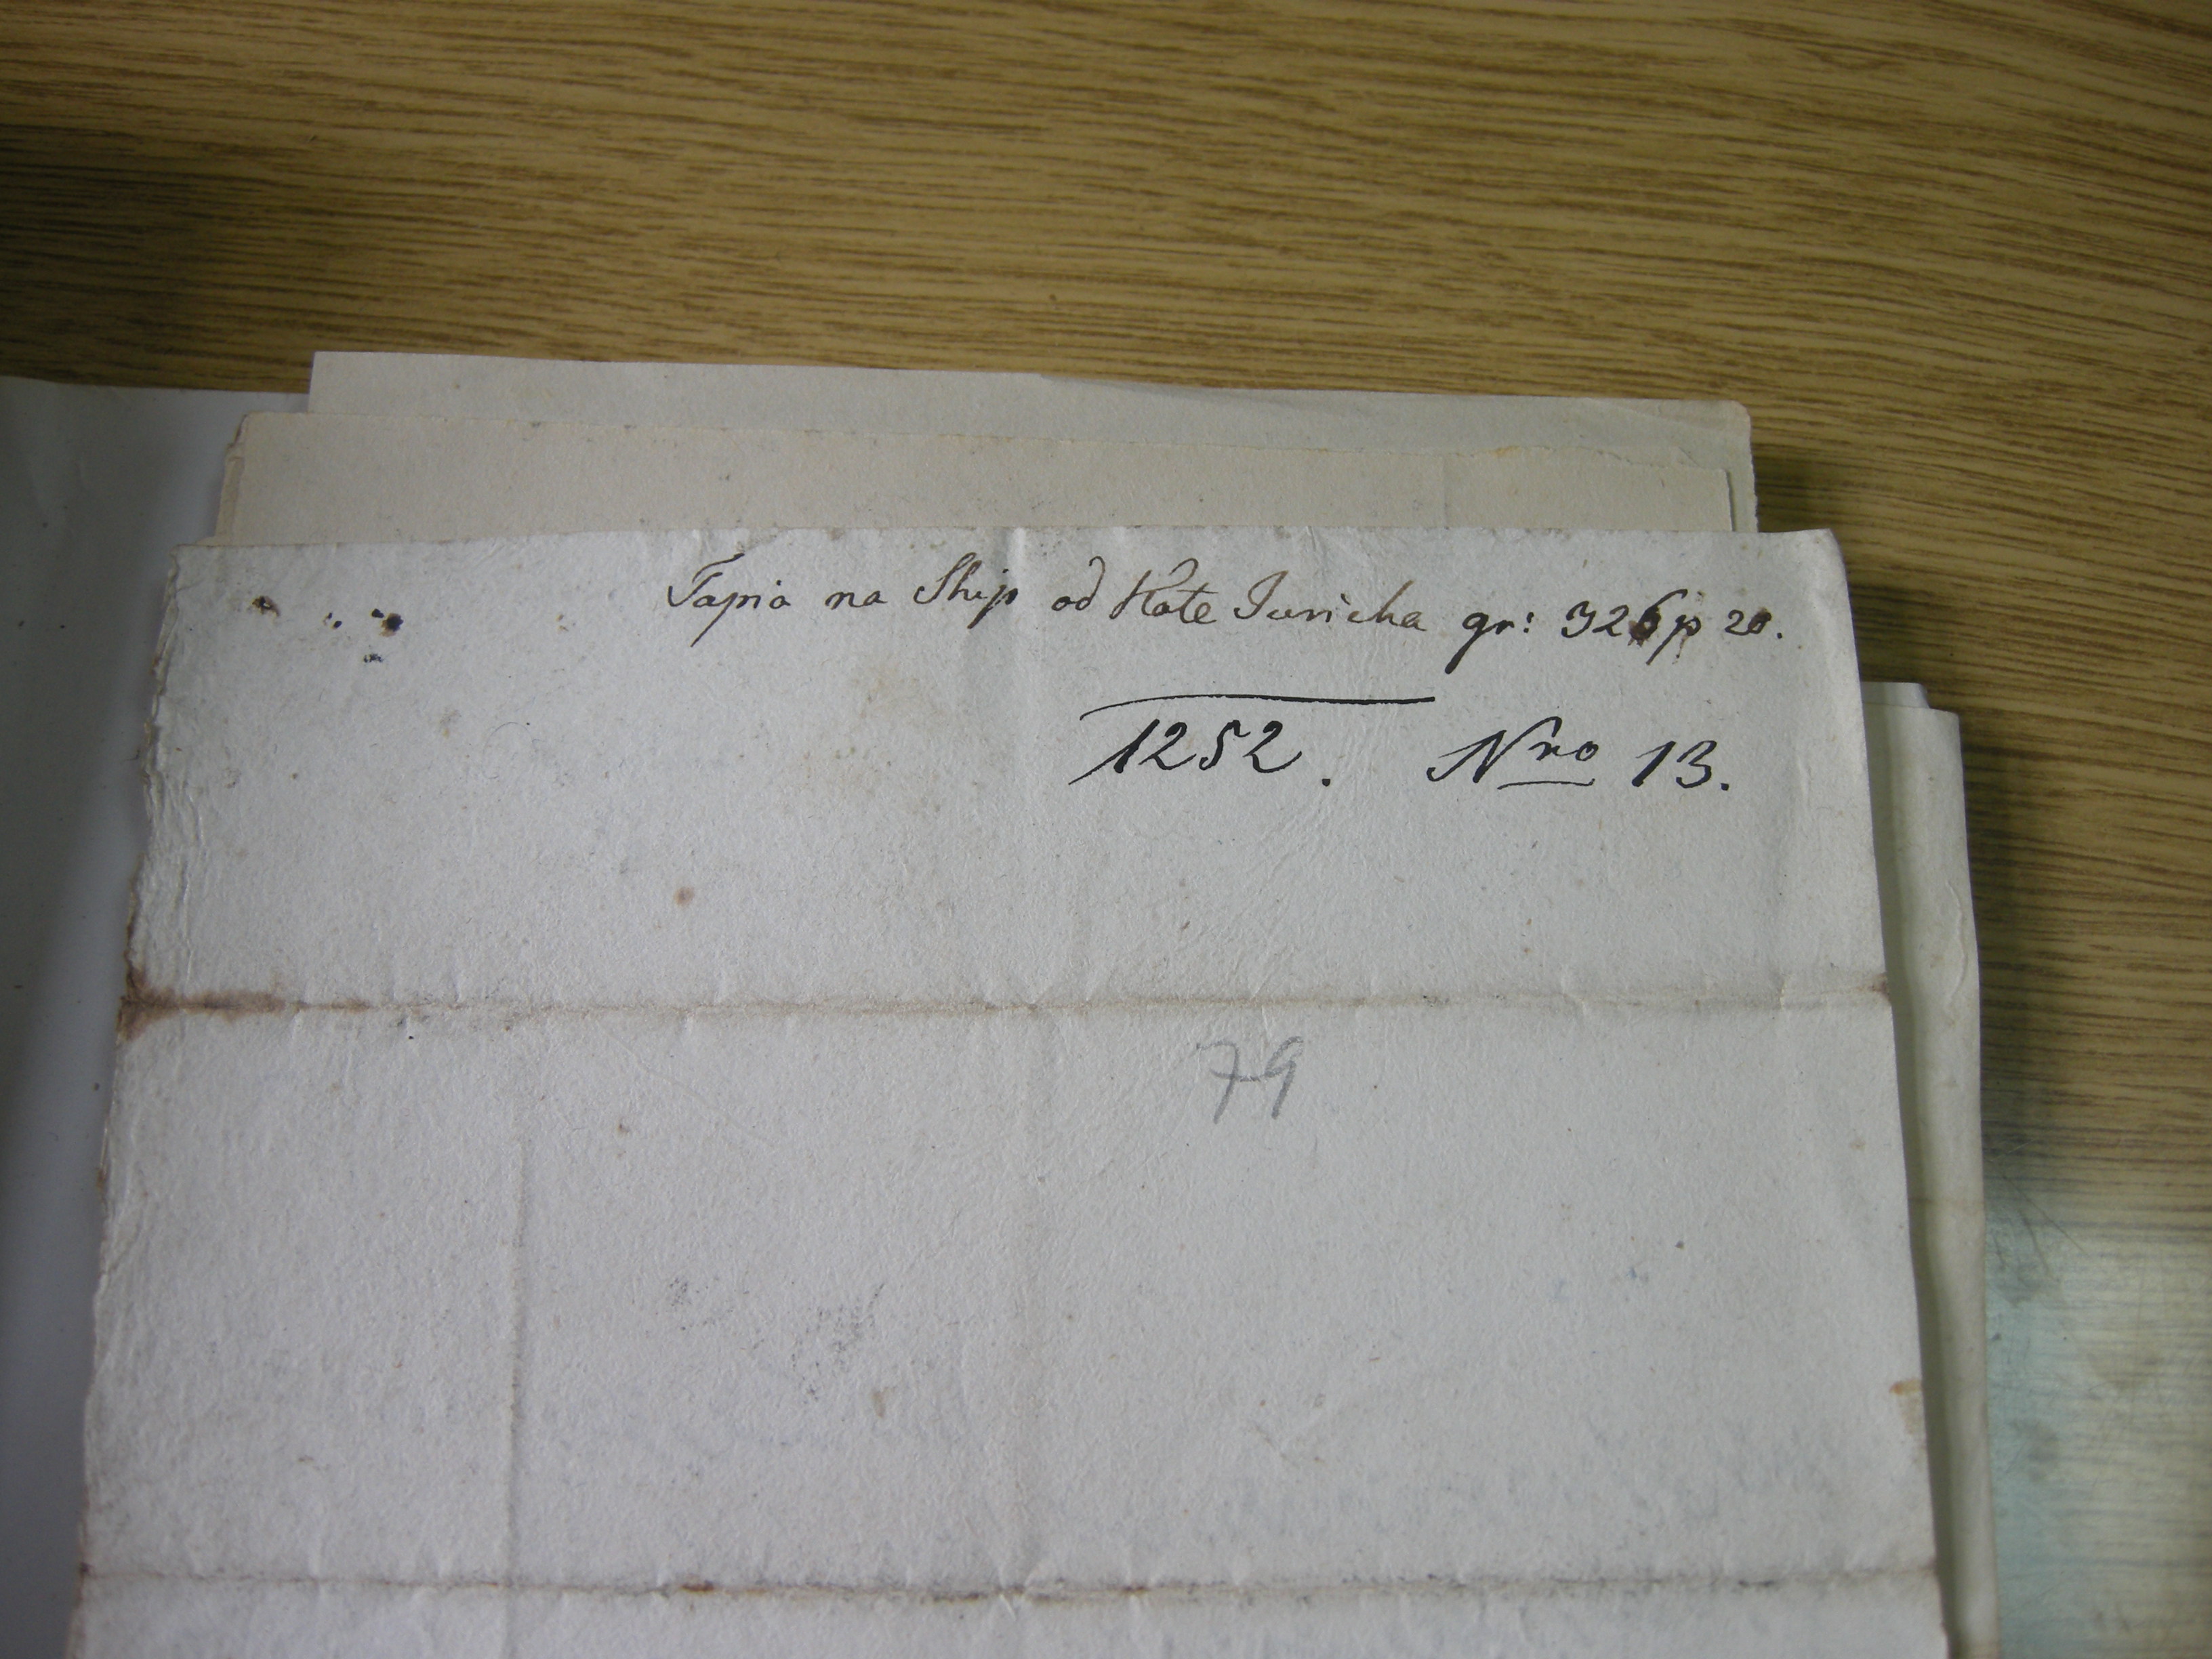 Tapia na Ship od Kate Juricha gr: 326 p 20.
1252. Nro 13.
79